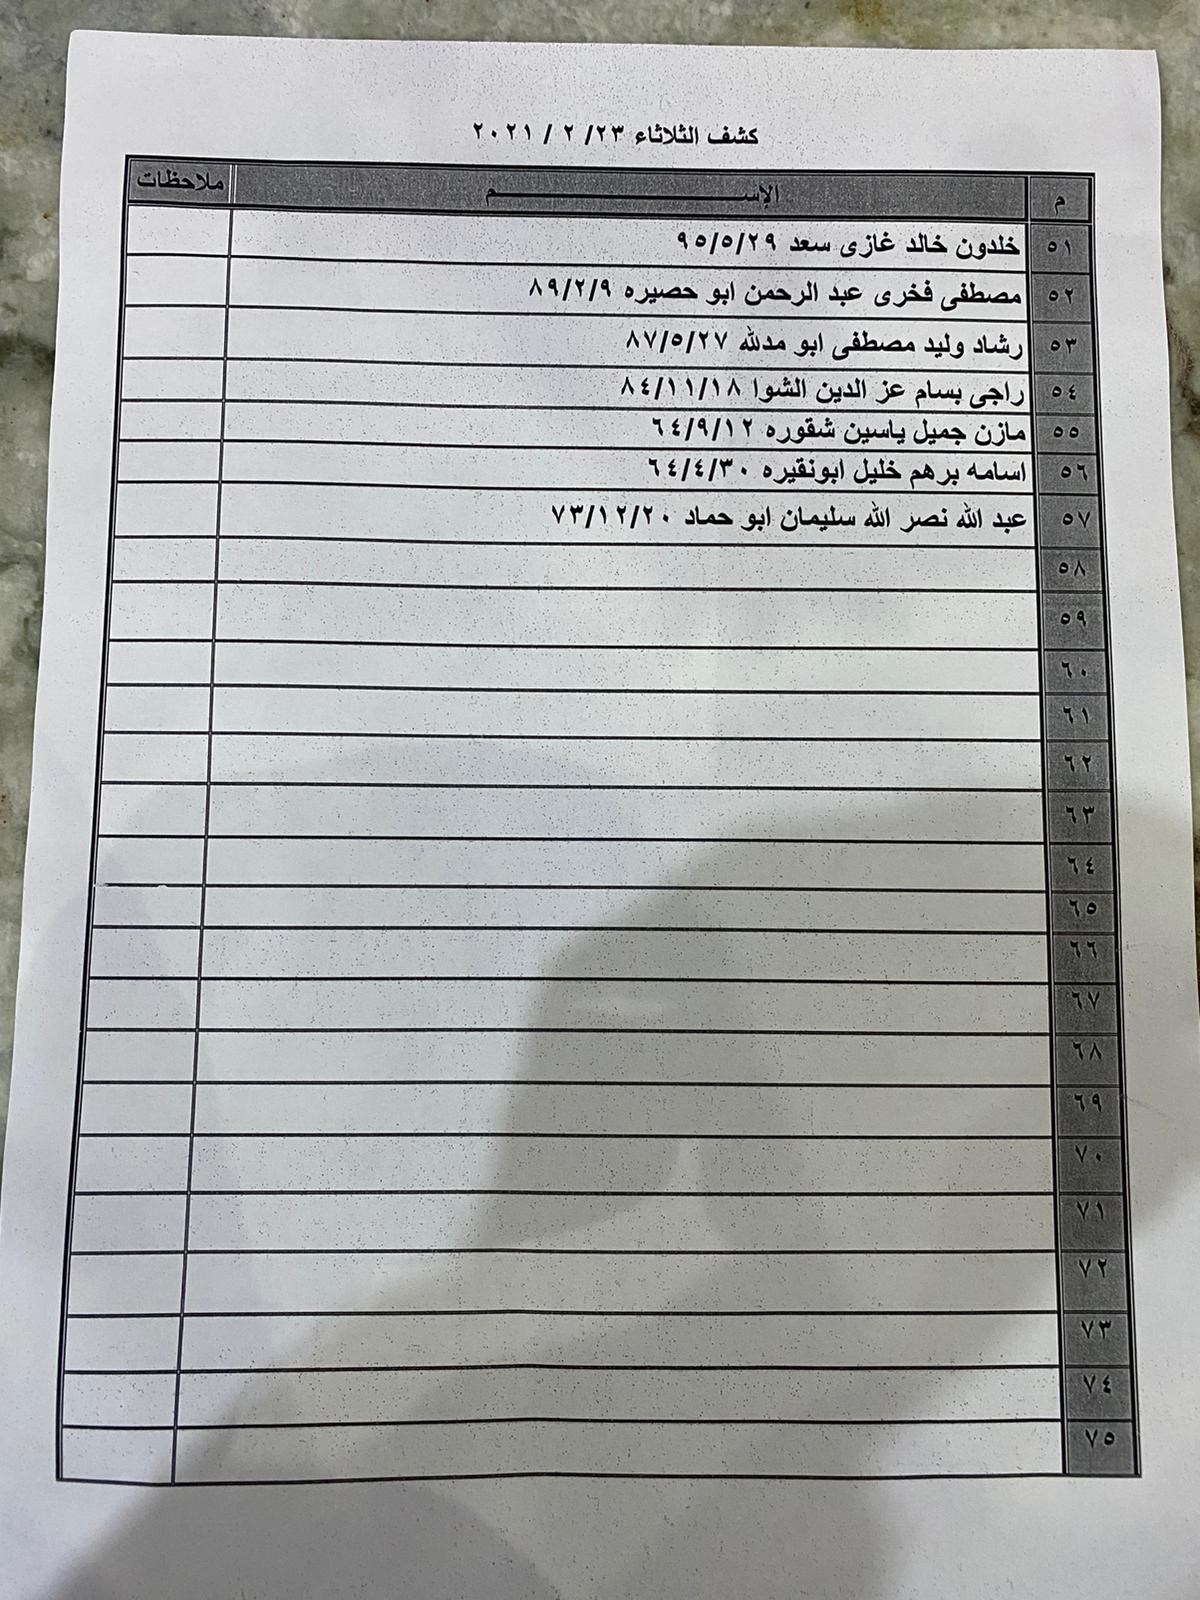 كشف الثلاثاء ٢٣/ ٢ / ٢٠٢١
م الإســـــــــــــــــــــــم ملاحظات
٥١ خلدون خالد غازى سعد ٩٥/٥/٢٩
٥٢ مصطفى فخرى عبد الرحمن ابو حصيره ٨٩/٢/٩
٥٣ رشاد وليد مصطفى ابو مدلله ٨٧/٥/٢٧
٥٤ راجى بسام عز الدين الشوا ٨٤/١١/١٨
٥٥ مازن جميل ياسين شقوره ٦٤/٩/١٢
٥٦ اسامه برهم خليل ابونقيره ٦٤/٤/٣٠
٥٧ عبد الله نصر الله سليمان ابو حماد ٧٣/١٢/٢٠
٥٨
٥٩
٦٠
٦١
٦٢
٦٣
٦٤
٦٥
٦٦
٦٧
٦٨
٦٩
٧٠
٧١
٧٢
٧٣
٧٤
٧٥